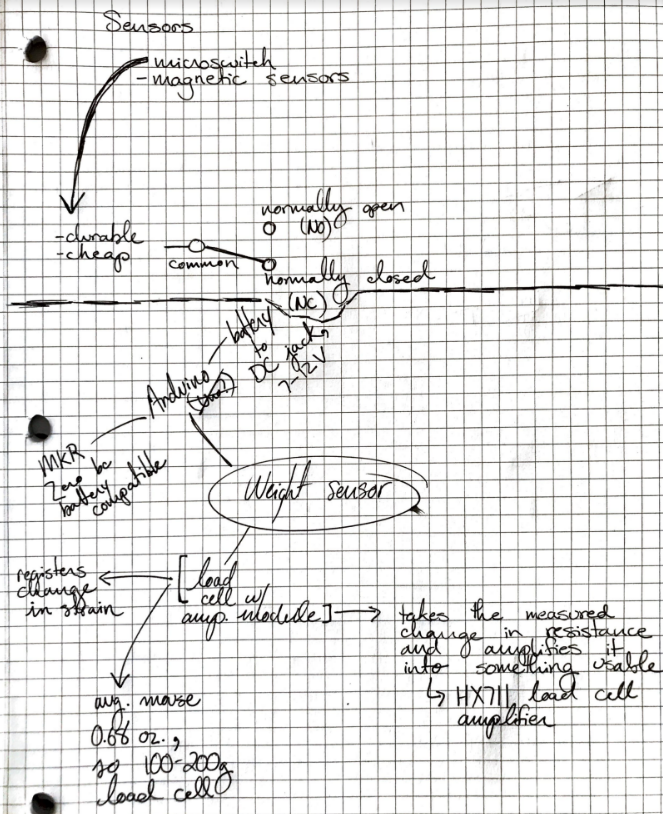 Sensors
- microswitch
- magnetic sensors
normally open
(NO)
- durable
- cheap
common
normally closed
(NC)
battery
to
DC jack,
7-12 V
Arduino
MKR
Zero bc
battery
compatible
Weight sensor
[load
cell w/
amp. module]
registers
change
in strain
takes the measured
change in resistance
and amplifies it
into something usable
↳ HX711 load cell
amplifier
avg. mouse
0.68 oz.,
so 100-200g
load cell